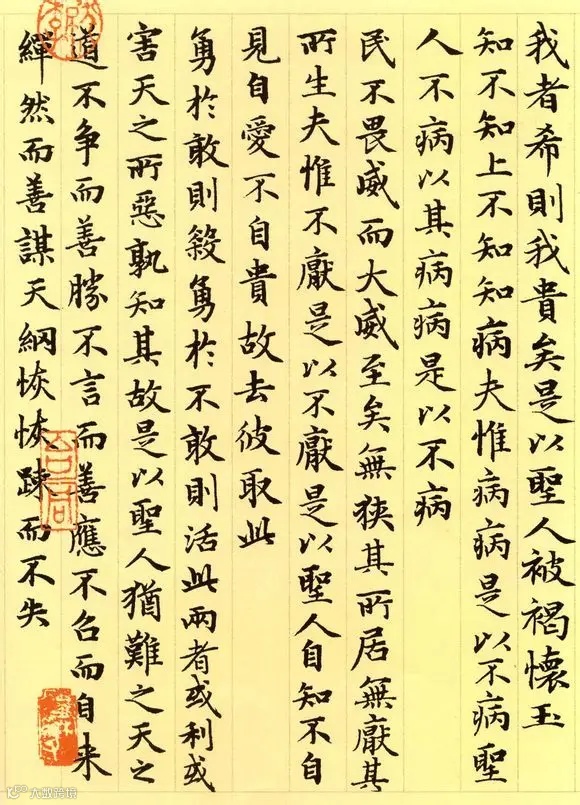 我者希則我貴矣是以聖人被褐懷玉
知不知上不知知病夫惟病病是以不病聖
人不病以其病病是以不病
民不畏威而大威至矣無狹其所居無厭其
所生夫惟不厭是以不厭是以聖人自知不自
見自愛不自貴故去彼取此
勇於敢則殺勇於不敢則活此兩者或利或
害天之所惡孰知其故是以聖人猶難之天之
道不争而善勝不言而善應不召而自来
繟然而善謀天網恢恢踈而不失
大数跨境